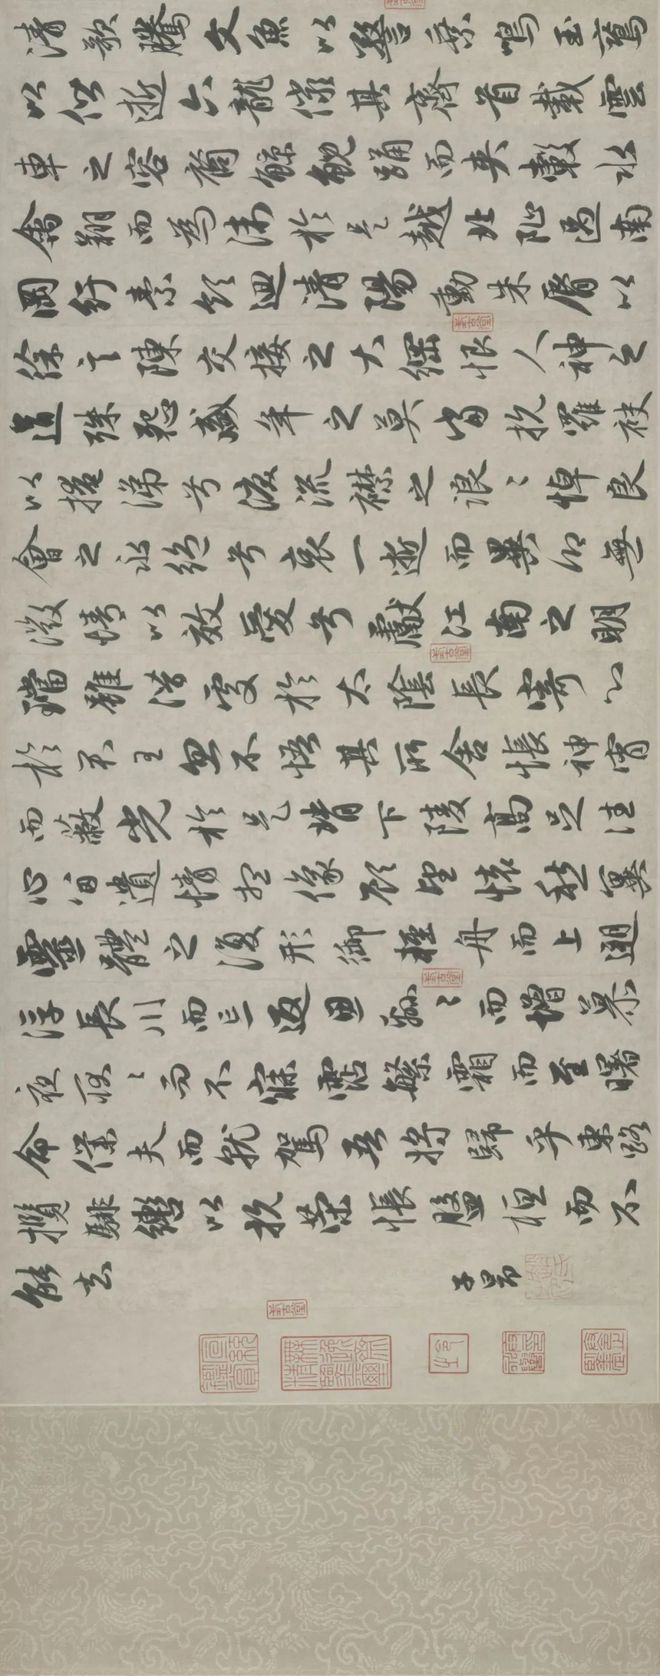 清歌騰文魚以警乘鳴玉鸞
以偕逝六龍儼其齊首載雲
車之容裔鯨鯢踊而夾轂水
禽翔而為衛於是越北沚過南
岡紆素領迴清陽動朱脣以
徐言陳交接之大綱恨人神之
道殊怨盛年之莫當抗羅袂
以掩涕兮淚流襟之浪〻悼良
會之永絕兮哀一逝而異鄉無
微情以效愛兮獻江南之明
璫雖潛處於太陰長寄心
於君王忽不悟其所舍悵神宵
而蔽光於是背下陵高足往
心留遺情想像顧望懷愁冀
靈體之復形御輕舟而上遡
浮長川而忘返思綿〻而增慕
夜耿〻而不寐霑繁霜而至曙
命僕夫而就駕吾將歸乎東路
攬騑轡以抗策悵盤桓而不
能去
子昂